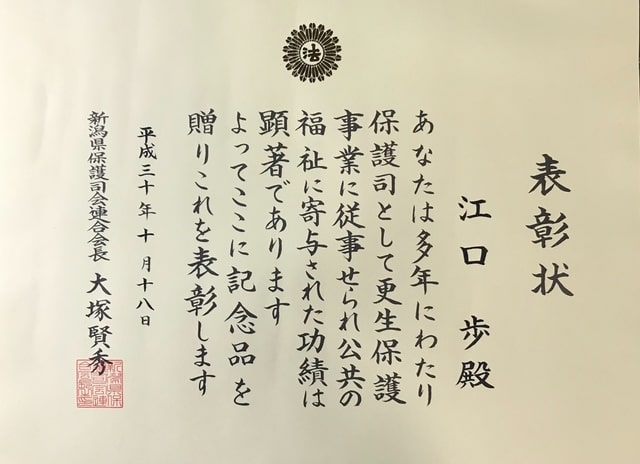 法
表彰状
江口 歩殿
あなたは多年にわたり
保護司として更生保護
事業に従事せられ公共の
福祉に寄与された功績は
顕著であります
よってここに記念品を
贈りこれを表彰します
平成三十年十月十八日
新潟県保護司会連合会長 大塚賢秀